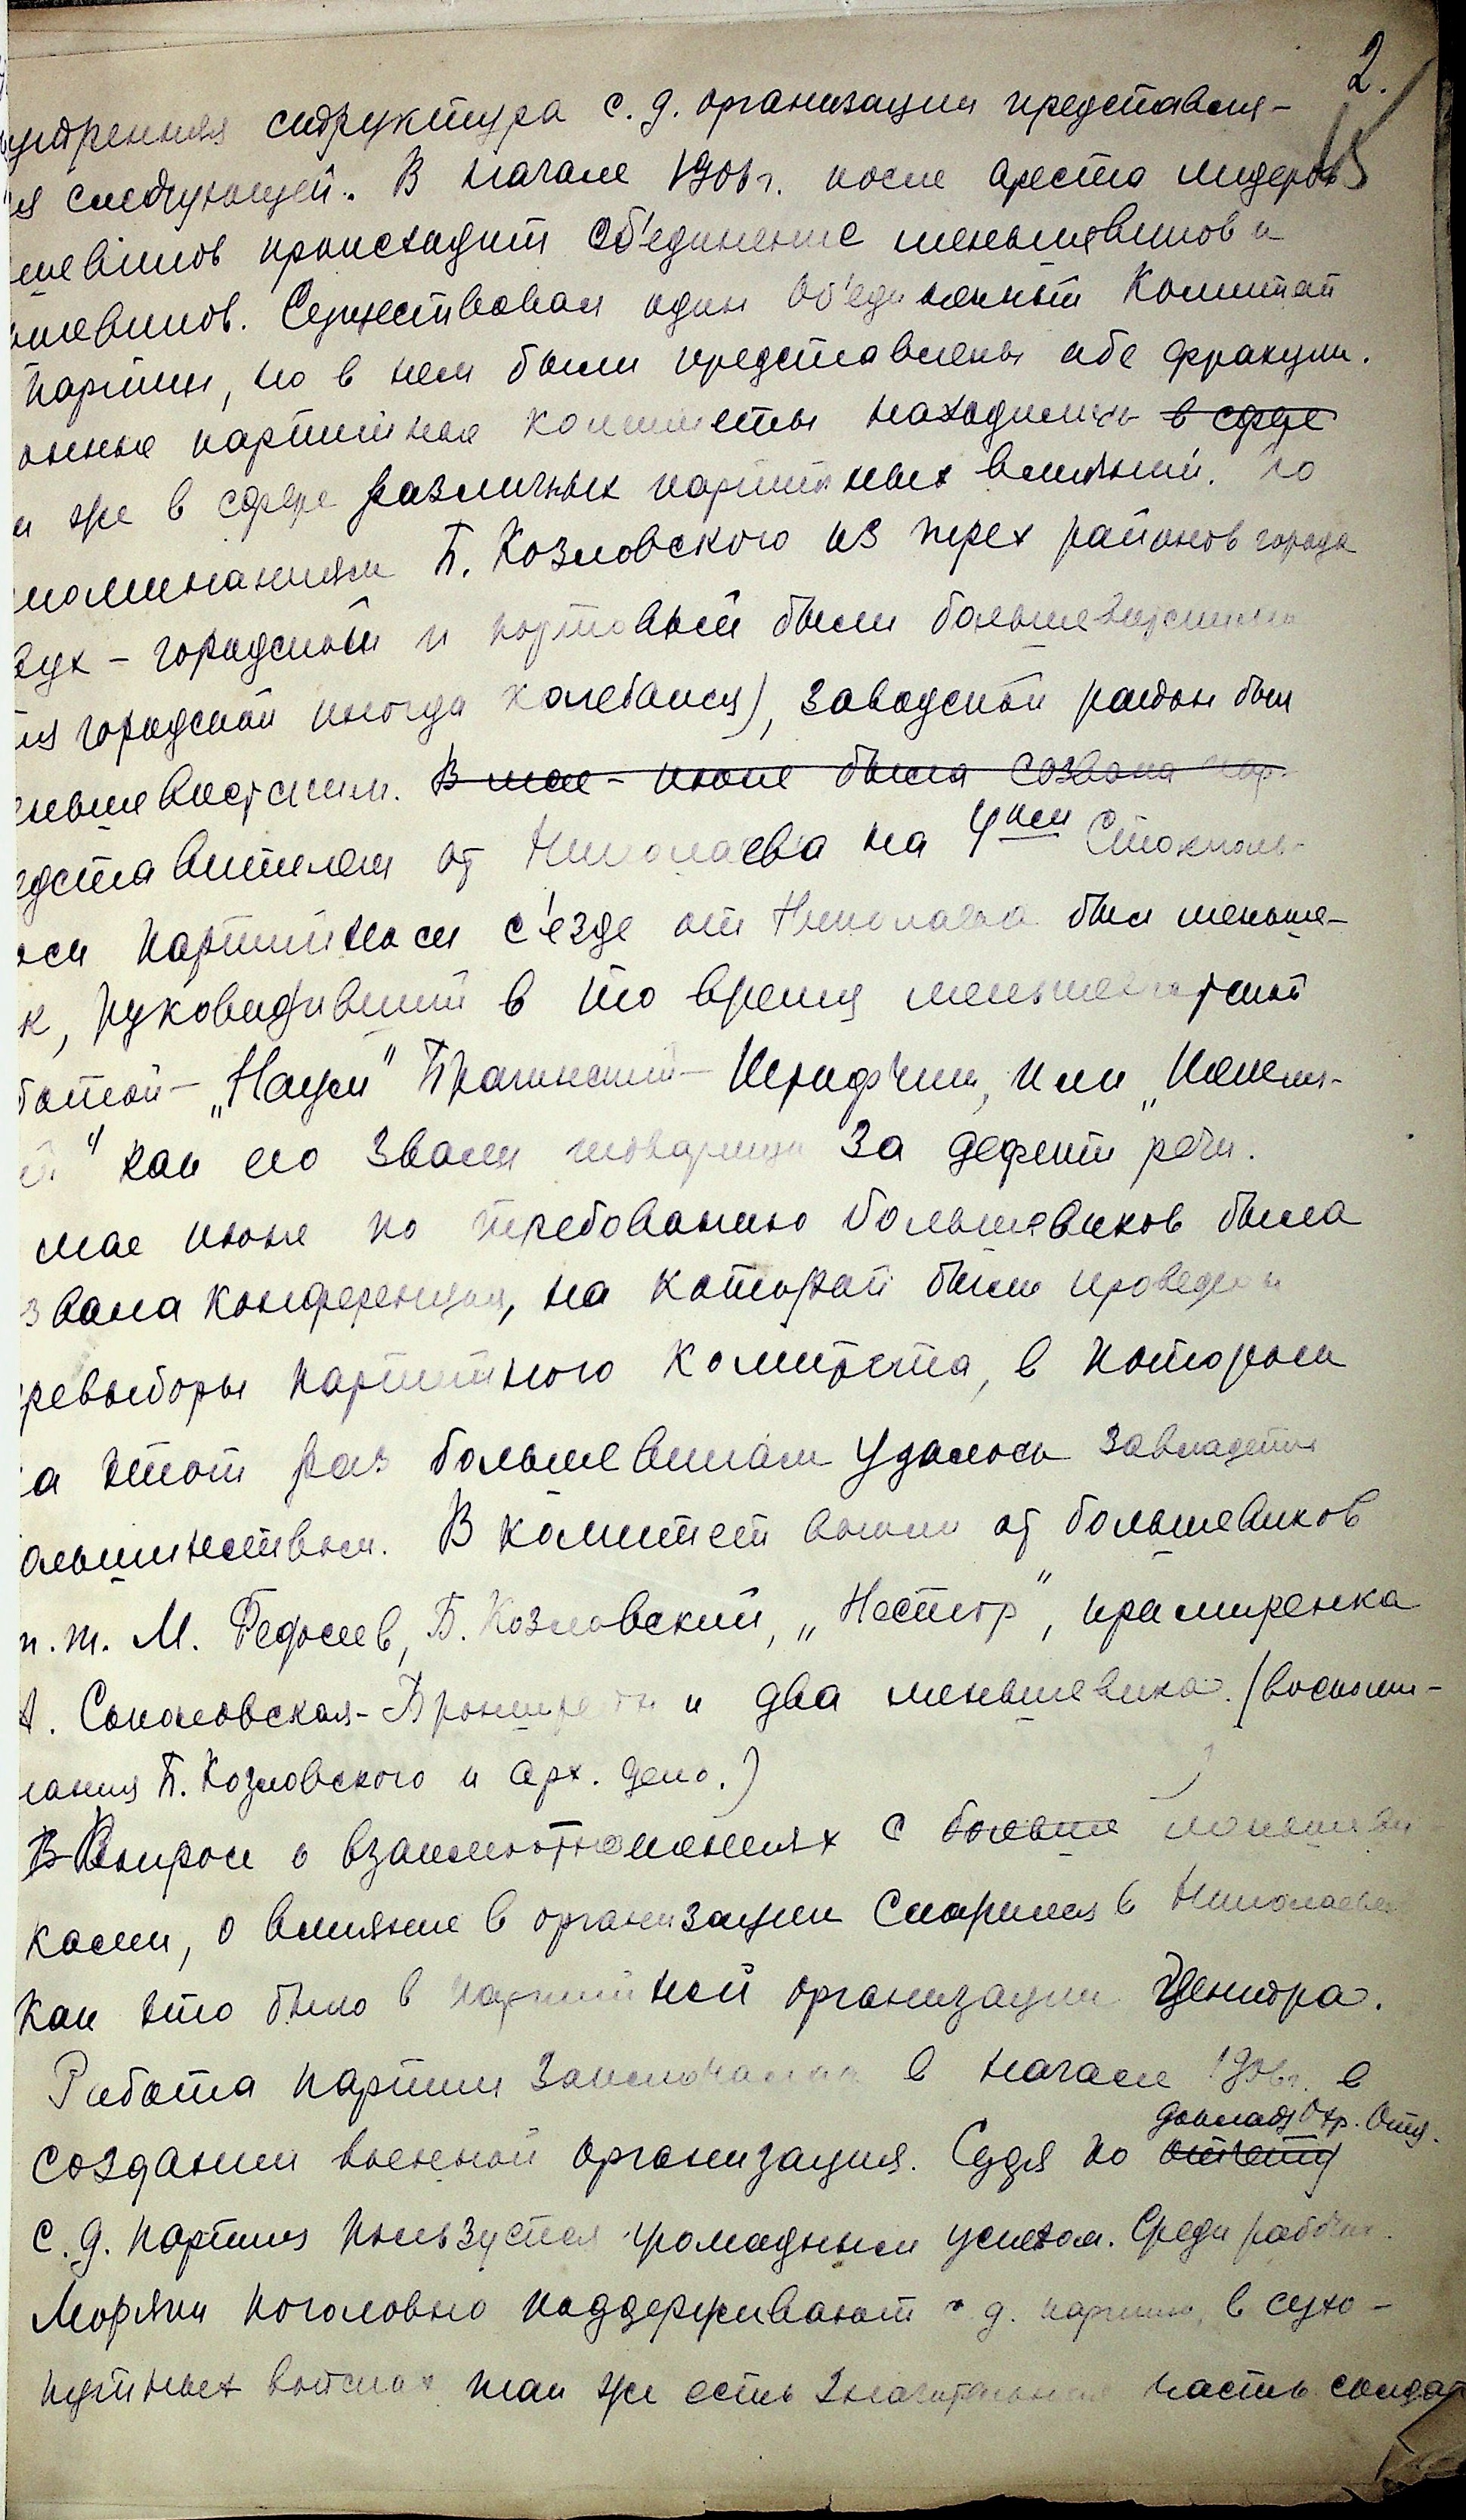 2.
15
утренняя структура с. д. организации представля-
я следующей. В начале 1906 г. после ареста лидеров
шевиков происходит об'единение меньшевиков и
шевиков. Существовал один об'единенный Комитет
партии, но в нем были представлены обе фракции.
онные партийные комитеты находились в сфере
и же в сфере различных партийных влияний. По
поминаниям Б. Козловского из трех районов города
вух - городской и портовый были большевистскими
городской иногда колебался), заводской район был
еньшевистским. В мае - июне была созвана пар-
едставителем от Николаева на 4ном Стокголь-
ком партийном с'езде от Николаева был меньше-
к, руководивший в то время меньшевистской
ботой - „Наум" Брагинский - или
" как его звали товарищи за дефект речи.
мае июне по требованию большевиков была
звана конференция, на которой были проведены
ревыборы партийного комитета, в котором
а этот раз большевикам удалось завладеть
ольшинством. В комитет вошли от большевиков
п. т. М. Федосеев, Б. Козловский, „Нестор", примиренка
А. Соколовская-Бронштейн и два меньшевика. (воспоми-
нания Б. Козловского и арх. дело.)
В Вопрос о взаимоотношениях с больше меньшеви
ками, о влияние в организации в Николаеве
как это было в партийной организации Центра.
Работа партии заключалась в начале 1906 г. в
докладу Охр. Отд.
создании военной организация. Судя по отчету
с. д. партия пользуется громадным успехом. Среди рабочих.
Моряки поголовно поддерживают с. д. партию, в сухо-
путных войсках так же есть значительная часть солдат